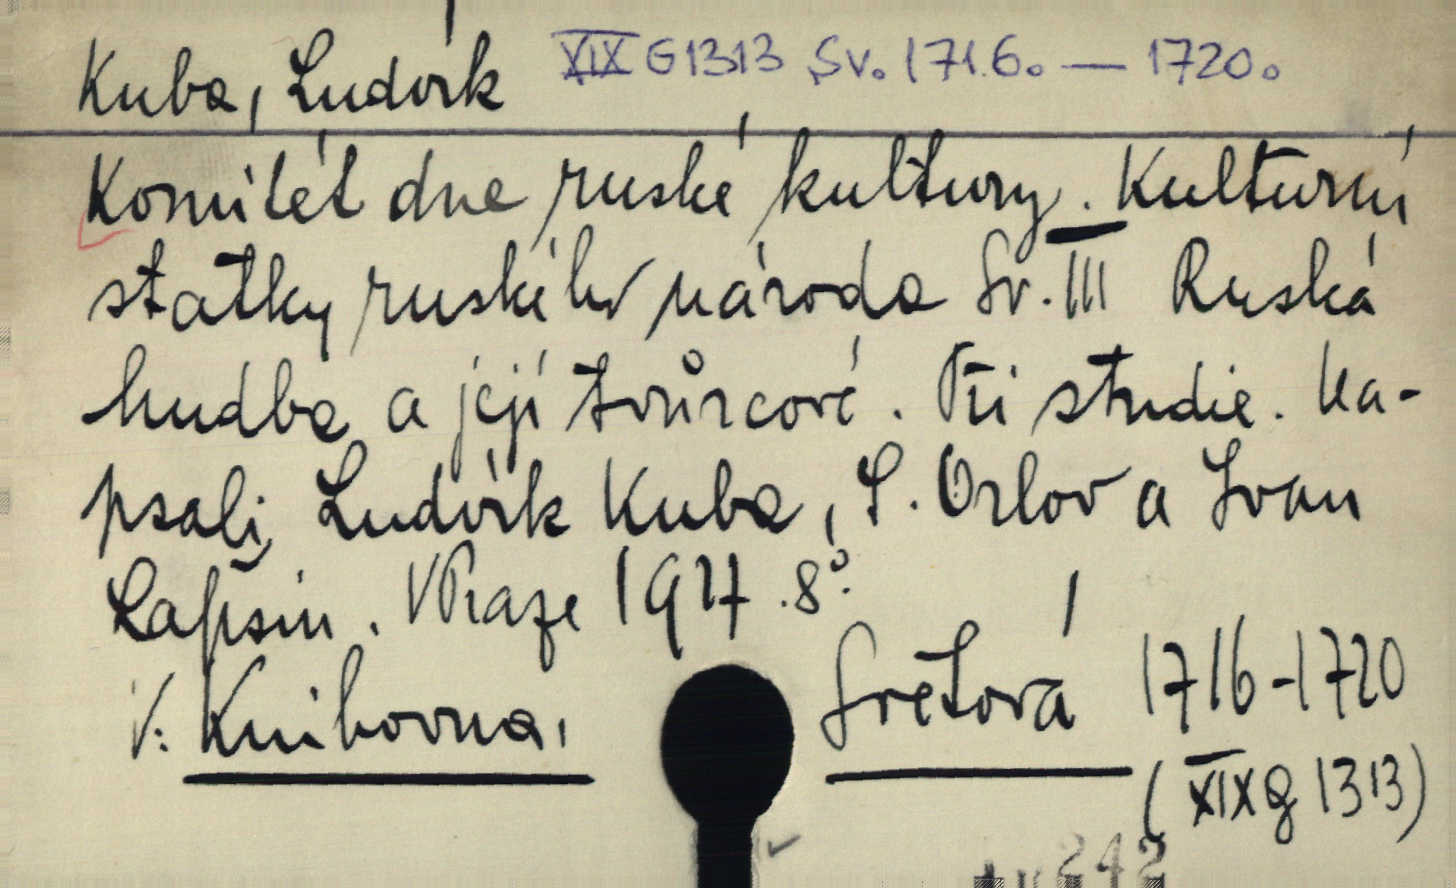 Kuba, Ludvík XIX G 1313 Sv. 1716. — 1720.
Komitét dne ruské kultury. Kulturní
statky ruského národa Sv. III Ruská
hudba a její tvůrcové. Tři studie. Na-
psali Ludvík Kuba, S. Orlov a Ivan
Lapšin. V Praze 1927. 8°.
V: Knihovna, Světová 1716-1720
(XIX G 1313)
242